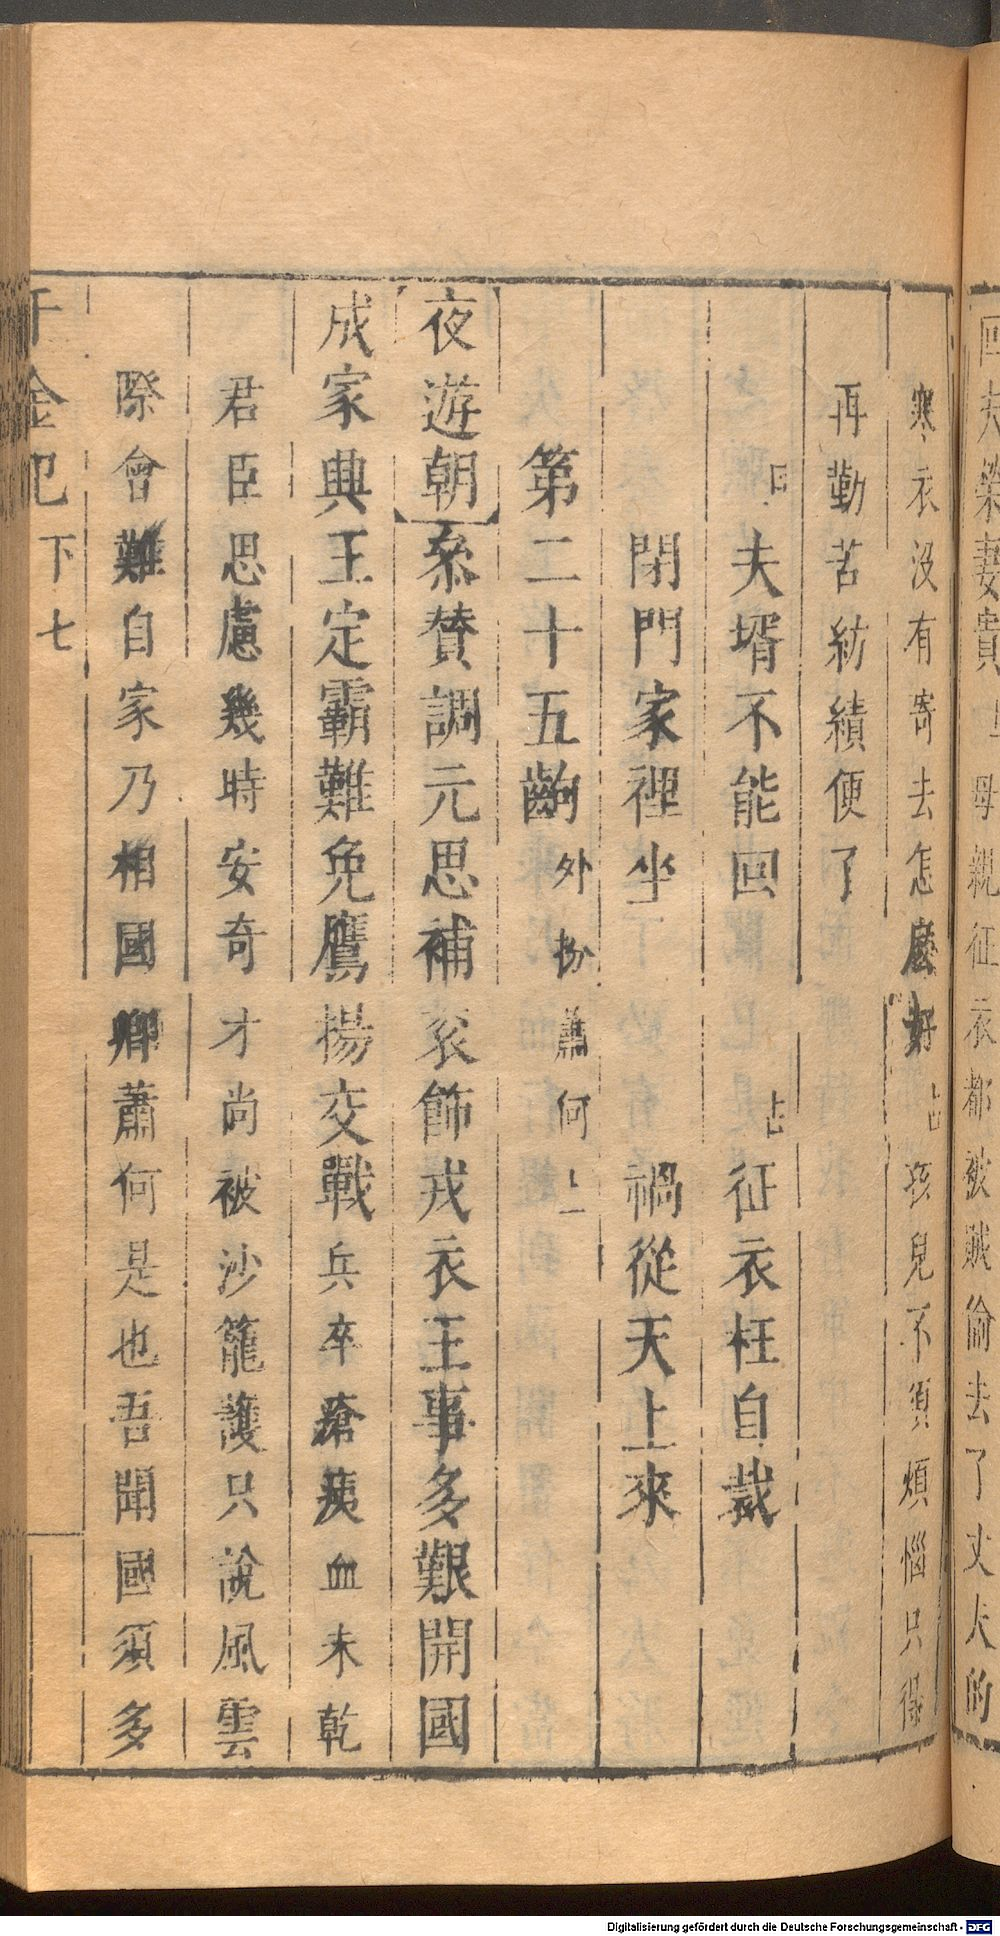 回夫榮妻貴旦母親征衣都被賊偷去了丈夫的
寒衣沒有寄去怎麼好占孩兒不須煩惱只得
再勤苦紡績便了
旦夫壻不能回 占征衣枉自裁
閉門家裡坐 禍從天上來
第二十五齣外扮蕭何上
夜遊朝 叅賛調元思補袞飾戎衣王事多艱開國
成家興王定霸難免鷹揚交戰兵卒瘡痍血未乾
君臣思慮幾時安奇才尚被沙籠護只說風雲
際會難自家乃相國卿蕭何是也吾聞國須多
千金記 下 七
Digitalisierung gefördert durch die Deutsche Forschungsgemeinschaft - DFG